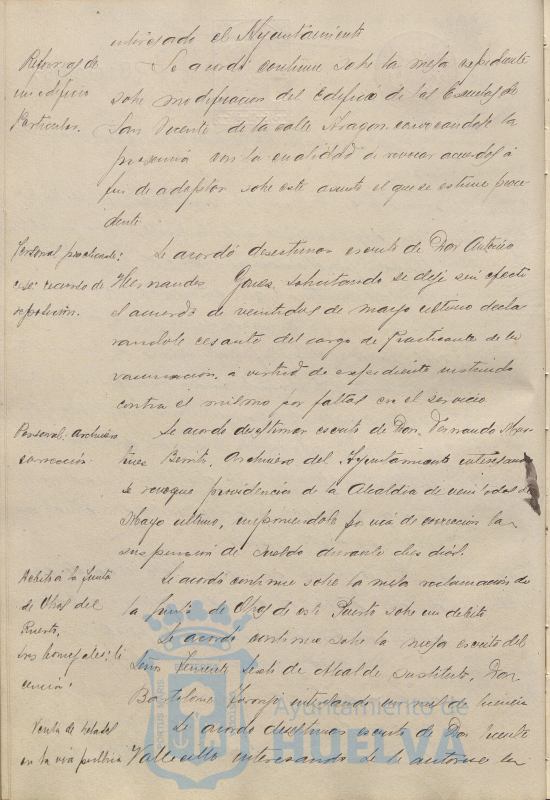 interesado el Ayuntamiento
Reformas de
un edificio
Particular.
Se acordó continue sobre la mesa expediente
sobre modificacion del Edificio de las Escuelas de
San Vicente de la calle Aragon convocandole la
proxima con la cualidad de revocar acuerdos á
fin de adoptar sobre este asunto el que se estime proce-
dente
Personal practicante:
recurso de
reposicion.
Se acordó desestimar escrito de Don Antonio
Hernandez solicitando se deje sin efecto
el acuerdo de veintidos de mayo ultimo decla
randole cesante del cargo de Practicante de la
vacunacion, á virtud de expediente instruido
contra el mismo por faltas en el servicio
Personal: Archivero
correccion.
Se acordo desestimar escrito de Don Fernando Mar-
tinez Benito, Archivero del Ayuntamiento interesando
se revoque providencia de la Alcaldia de veintidos de
Mayo ultimo, imponiendole por via de correccion la
suspension de sueldo durante dos dias.
Debito á la Junta
de Obras del
Puerto,
Se acordó continue sobre la mesa reclamacion de
la Junta de Obras de este Puerto sobre un debito
concejales: li
cencia:
Se acordó continue sobre la mesa escrito del
Señor Teniente Sexto de Alcalde sustituto, Don
Bartolome interesando un mes de licencia
Venta de helados
en la via publica
Se acordo desestimar escrito de Don Vicente
Vallecillo interesando se le autorice la
PORTUS MARIS
Ayuntamiento de
HUELVA